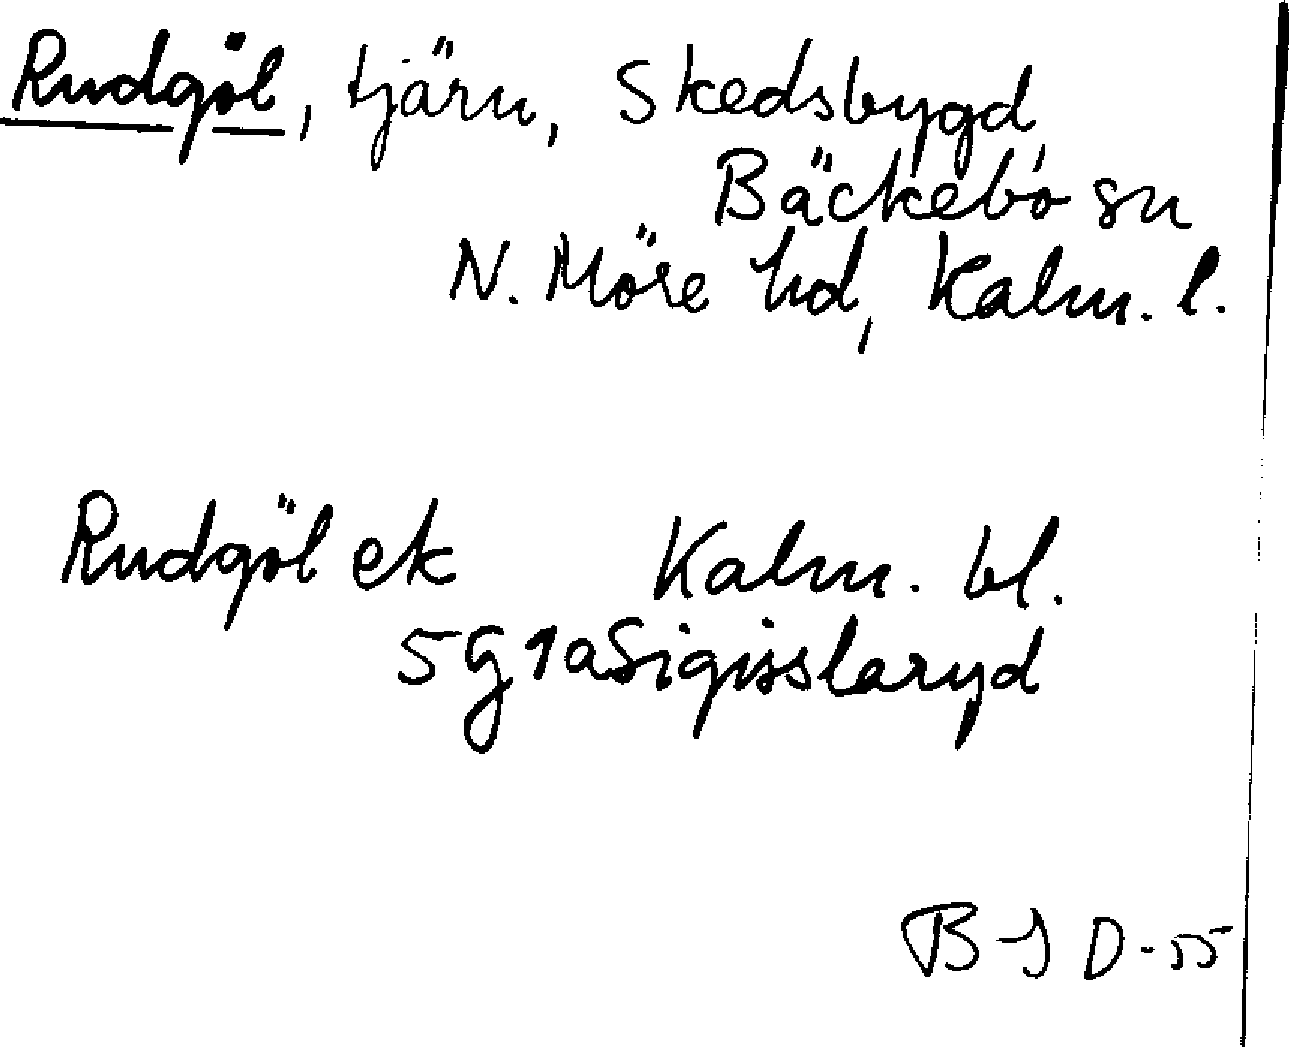 Rudgöl, tjärn, Skedsbygd,
Bäckebo sn
N. Möre hd, Kalm. l.
Rudgöl ek Kalm. bl.
5G1a Sigisslaryd
B-J D-55